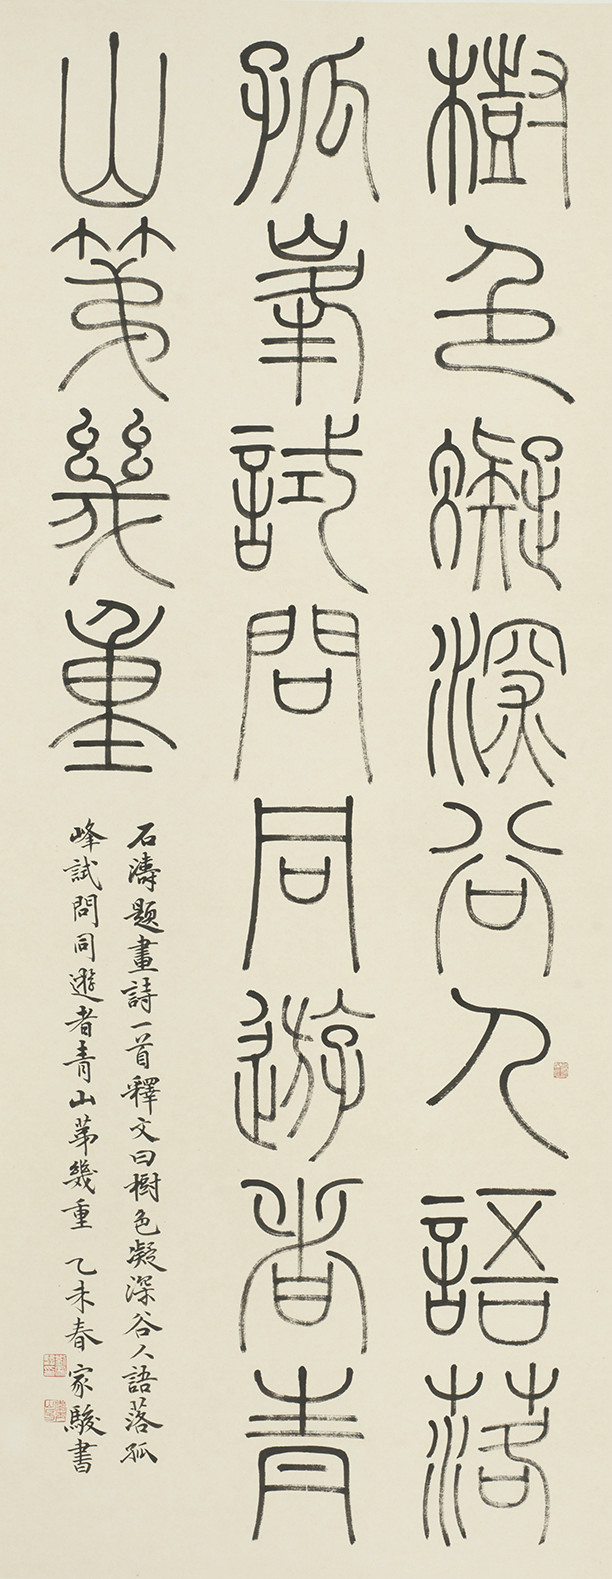 樹色凝深谷人語落
孤峯試問同遊者青
山第幾重
石濤題畫詩一首釋文曰樹色凝深谷人語落孤
峰試問同遊者青山第幾重 乙未春 家駿書